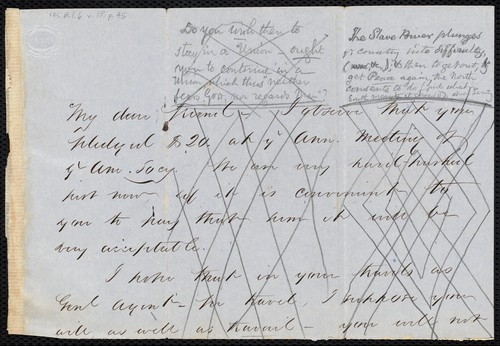 Ms. B.1.6 v.15, p.45
Do you wish then to
stay in a Union - ought
you to continue in a
Union which thus neither
fears God nor regards Man"?
The Slave Power plunges
ye country into difficulty,
(war, &c.), & then to get out, &
get Peace again, the North
consents to do just what
South
My dear Friend - I observe that you
pledged $20. at ye Ann. Meeting of
ye Am. Socy. We are very hard-pushed
just now - & if it is convenient to
you to pay that sum it will be
very acceptable.
I hope that in your travels as
Genl Agent - for travel, I suppose you
will as well as travail - you will not